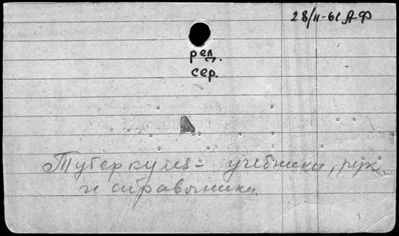 28/II-61 А-Ф
ред.
сер.
А
Туберкулез - учебники, рук.
и справочники.